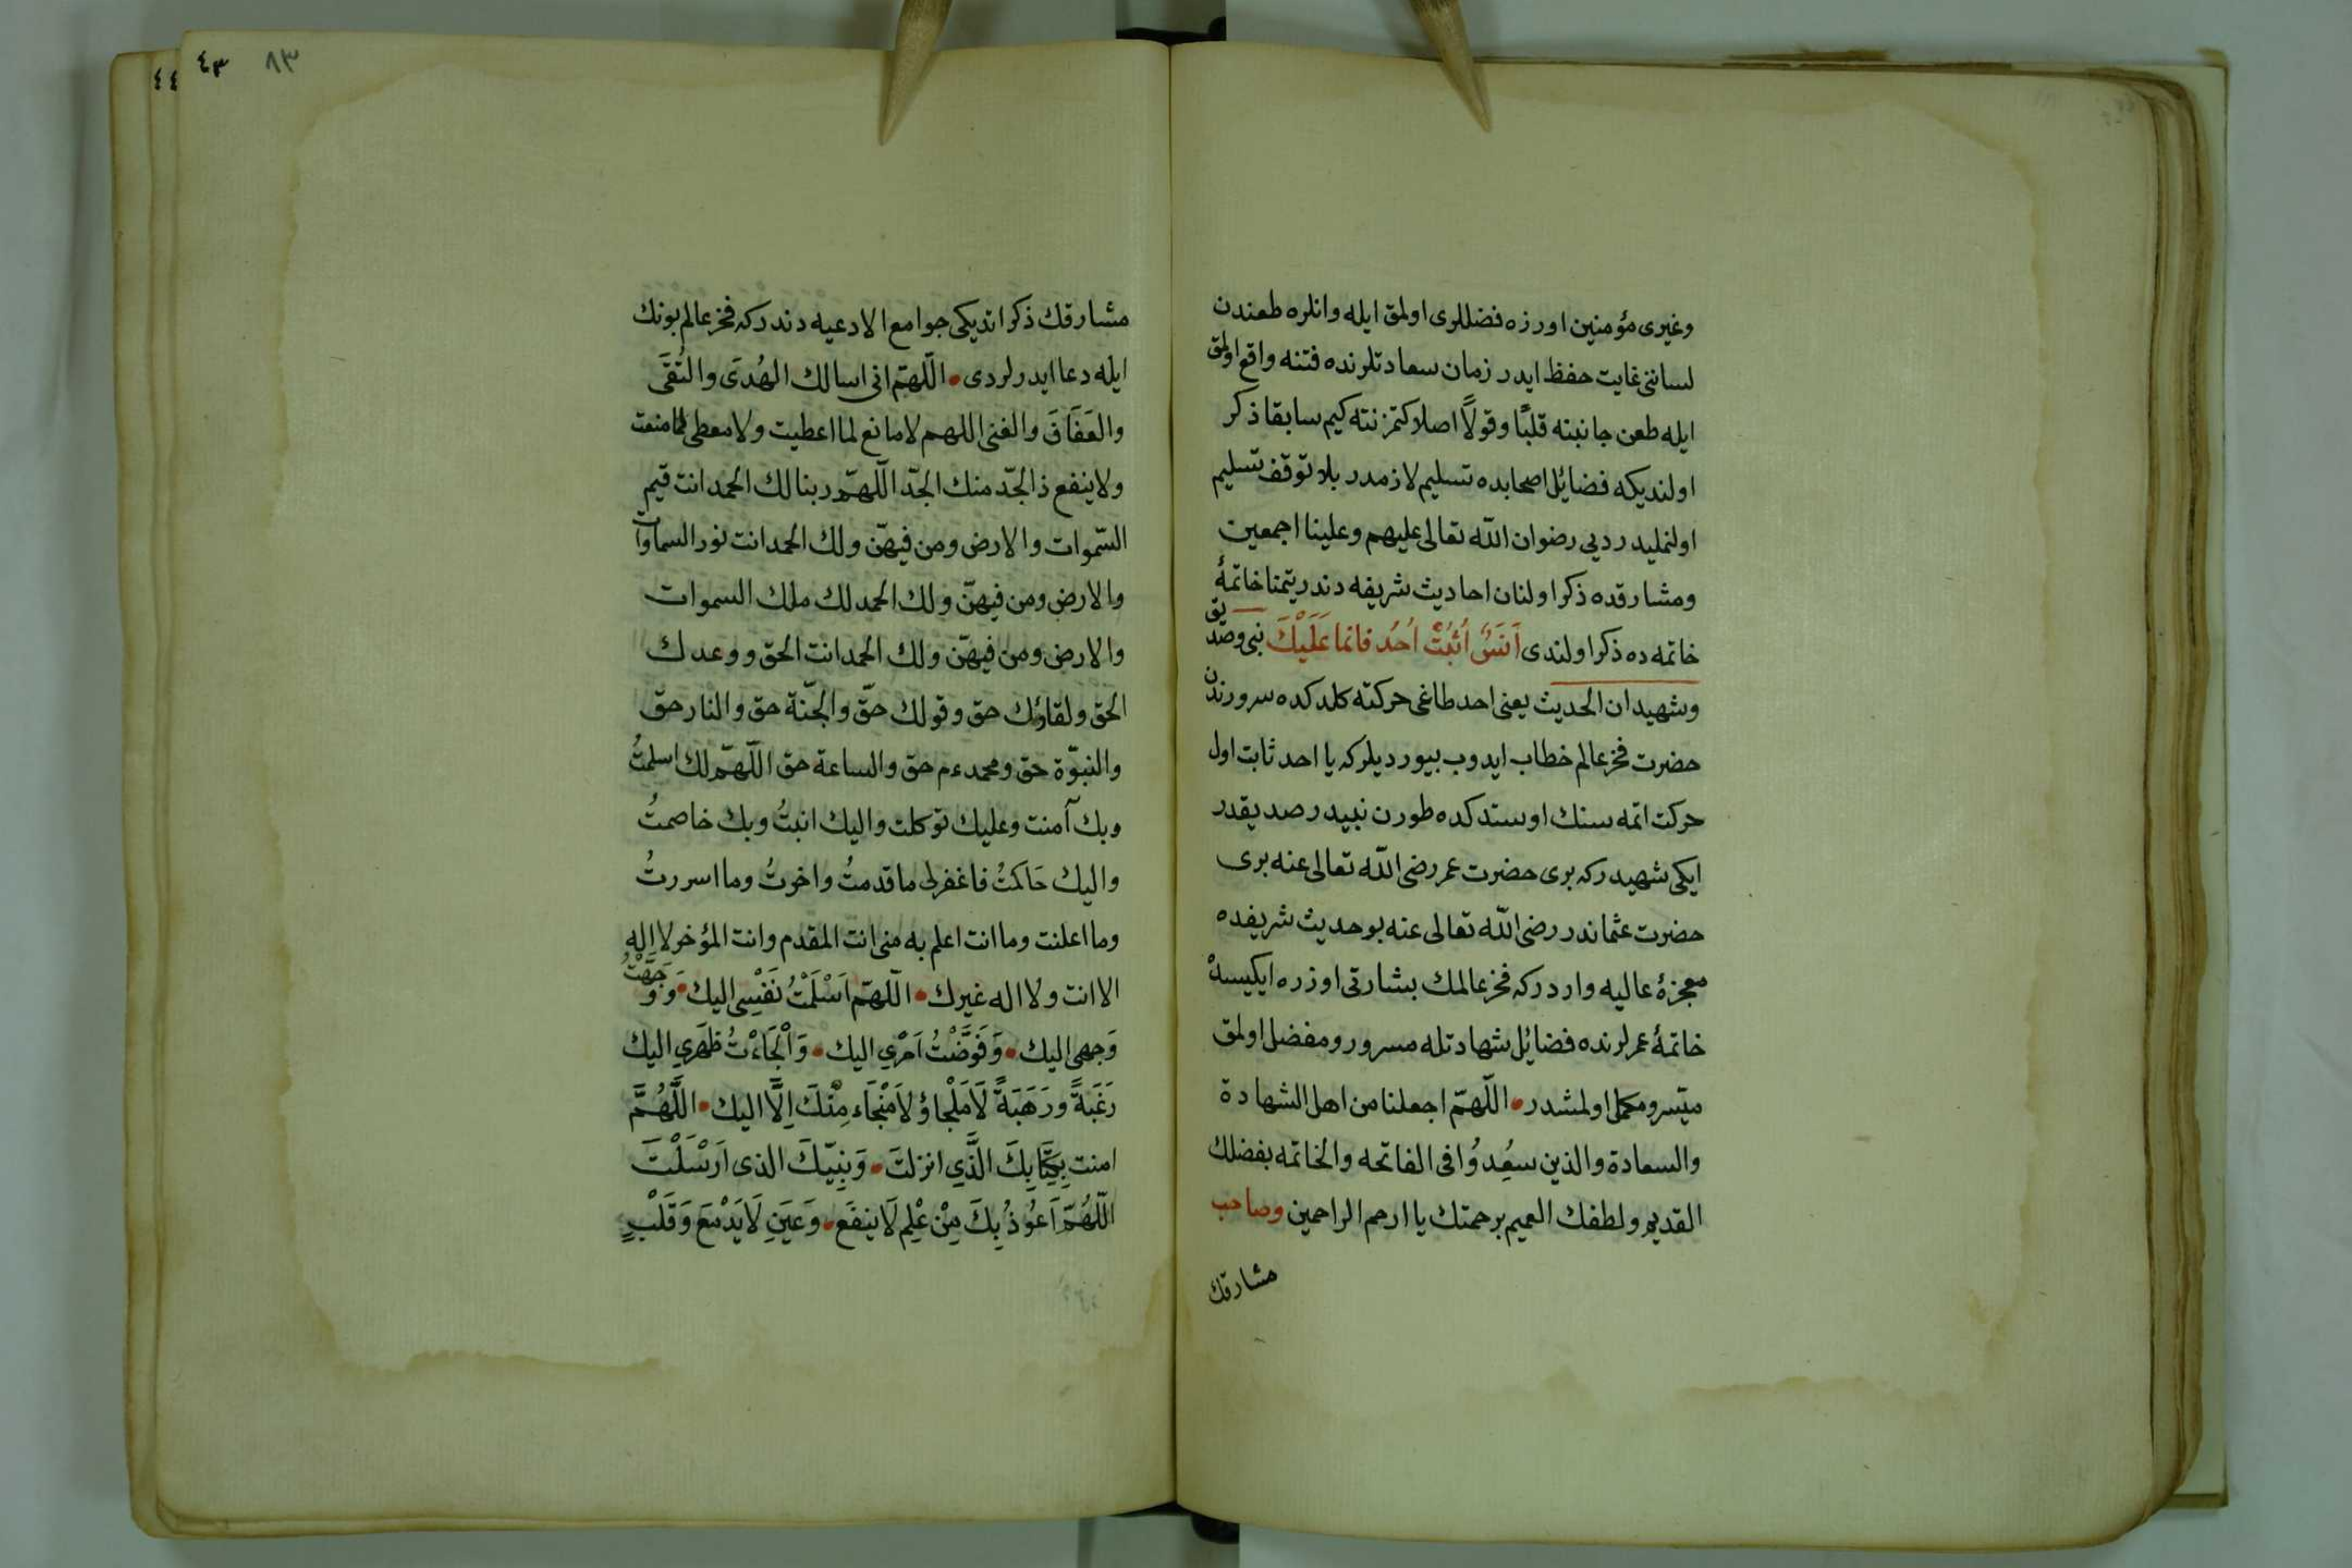 وغيرى مؤمنين اورزه فضللرى اولمق ايله وانلره طعندن
لساننى غايت حفظ ايدر زمان سعادتلرنده فتنه واقع اولمق
ايله طعن جانبنه قلبًا وقولًا اصلا كتمزنته كيم سابقا ذكر
اولنديكه فضائل اصحابده تسليم لازمدر بلا توقف تسليم
اولنمليدر ديى رضوان الله تعالى عليهم وعلينا اجمعين
ومشارقده ذكر اولنان احاديث شريفه دندر يتمنا خاتمهٔ
خاتمه ده ذكر اولندى اُثبُتْ اُحُد فانما عَلَيْكَ نبى وصديق
وشهيدان الحديث يعنى احد طاغى حركته كلدكده سرورندن
حضرت فخر عالم خطاب ايدوب بيورديلركه يا احد ثابت اول
حركت اتمه سنك اوستدكده طورن نبيدر صديقدر
ايكى شهيددركه برى حضرت عمر رضى الله تعالى عنه برى
حضرت عثماندر رضى الله تعالى عنه بو حديث شريفده
معجزهٔ عاليه واردركه فخر عالمك بشارتى اوزره ايكيسنهْ
خاتمهٔ عمرلرنده فضائل شهادتله مسرور ومفضل اولمق
ميسر ومكمل اولمشدر • اللّهمّ اجعلنا من اهل الشهادة
والسعادة والذين سعُدوُا فى الفاتحه والخاتمه بفضلك
القديم ولطفك العميم برحمتك يا ارحم الراحمين وصاحب
مشارقك
٨٣ ٤٣
٤٤
مشارقك ذكر اتديكى جوامع الادعيه دندركه فخر عالم بونك
ايله دعا ايدرلردى • اللّهمّ انى اسالك الهُدَى والتُقَى
والعَفَافَ والغنى اللهم لا مانع لما اعطيت ولا معطى لما منعت
ولا ينفع ذا لجدّ منك الجدّ اللّهمّ ربنا لك الحمد انت قيم
السّموات والارض ومن فيهنّ ولك الحمد انت نور السماوات
والارض ومن فيهنّ ولك الحمد لك ملك السموات
والارض ومن فيهنّ ولك الحمد انت الحق ووعدك
الحق ولقاؤك حق وقولك حقّ والجنّة حق والنار حق
والنبوّة حق ومحمد ءم حق والساعة حق اللّهمّ لك اسلمتُ
وبك آمنت وعليك توكلت واليك انبتُ وبك خاصمتُ
واليك حَاكمتُ فاغفرلى ما قدمتُ واخرتُ وما اسررتُ
وما اعلنت وما انت اعلم به منى انت المقدم وانت المؤخر لا اله
الا انت ولا اله غيرك • اللّهمّ اَسْلَمْتُ نَفْسِى اليك • وَوَجَّهْتُ
وَجهى اليك • وَفَوَّضْتُ اَمْرِي اليك • وَاَلْجَاءْتُ ظَهرِي اليك
رَغبَةً ورَهَبَةً لَا مَلْجاؤ لَا مَنْجَاء مِنْكَ اِلَّا اليك • اللَّهُمَّ
امنت بِكِتَابِكَ الَّذي انزلتَ • وَبِنِبيّكَ الذى اَرْسَلْتَ
اللّهُمّ اَعُوذُ بِكَ مِنْ عْلِم لَا ينفَع • وَعَينِ لَا يَدْمَعَ وَقَلْبٍ